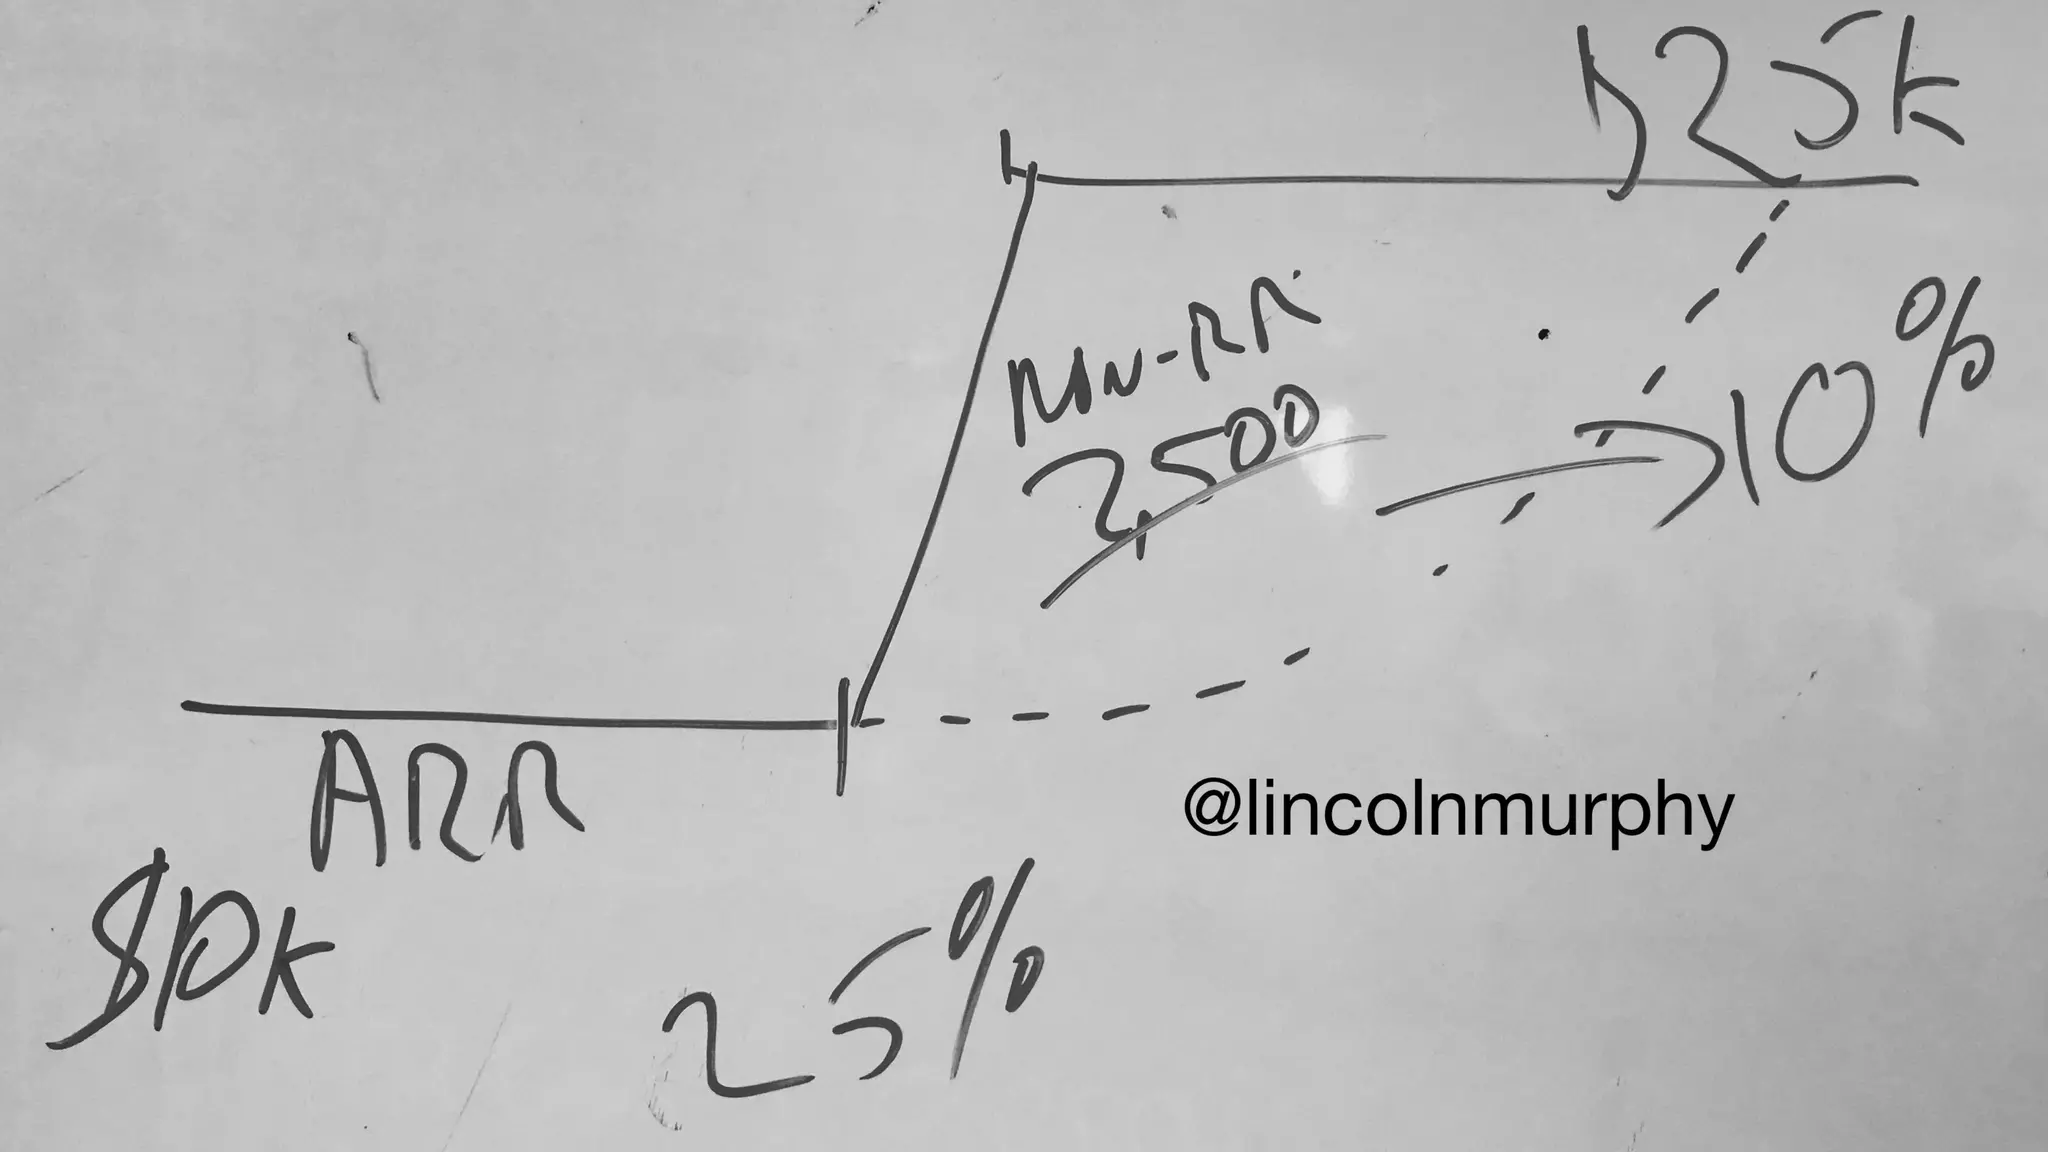 $25k
NON-RR
2,500
10%
ARR
@lincolnmurphy
$10k
25%